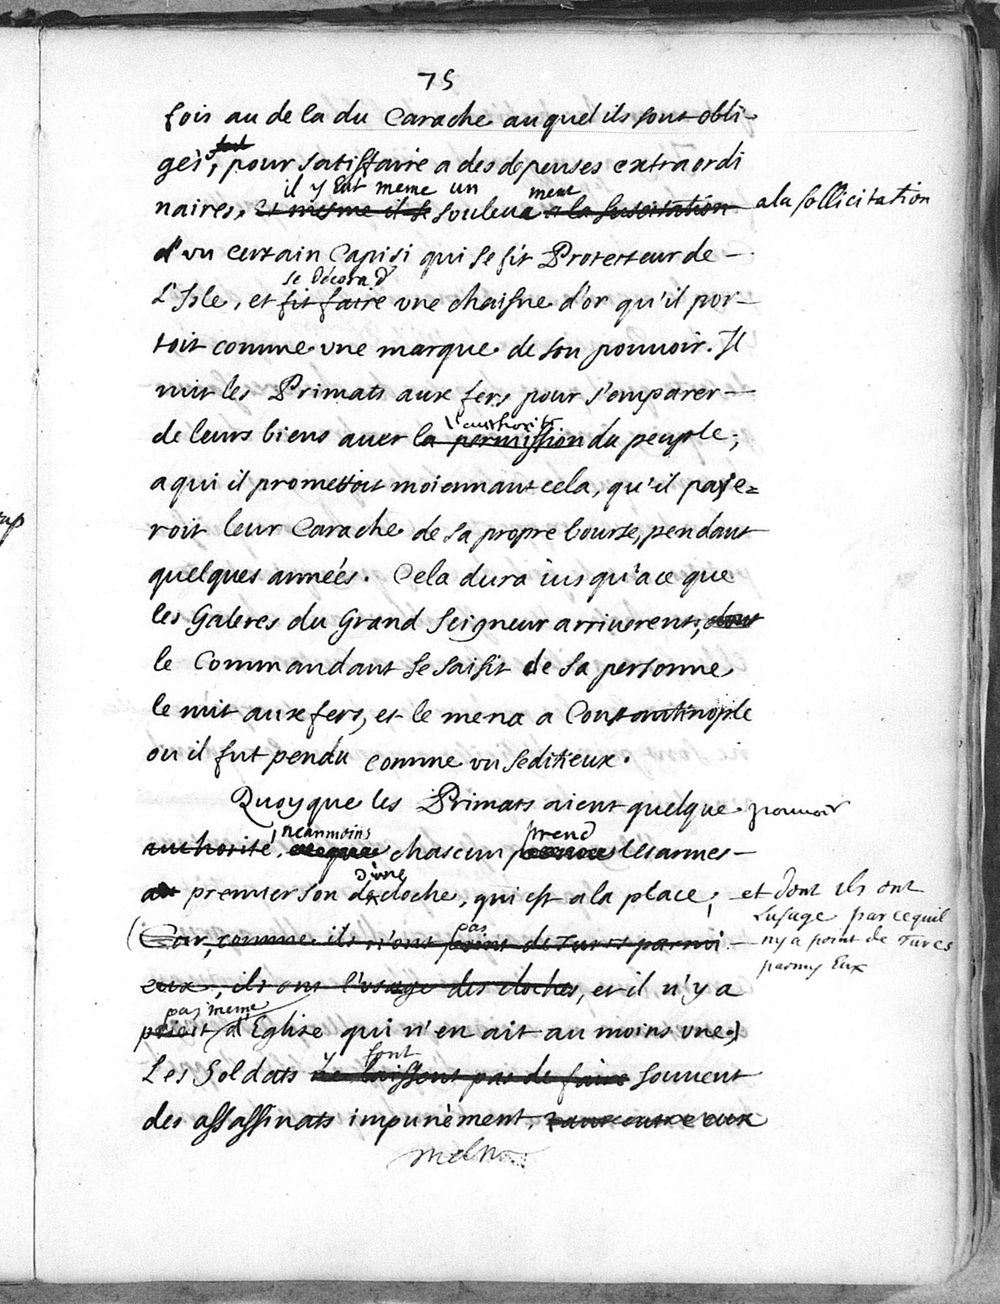 75
fois au de la du Carache auquel ils sont obli-
gés, pour satisffaire a des depenses extraordi
il y eut meme un meut
naires, et mesme il se souleua a la suscitation a la sollicitation
d'un certain Capisi qui se fit Protecteur de
se décora d'
L'Isle, et fit faire vne chaisne d'or qu'il por-
toit comme vne marque de son pouuoir. Il
mit les Primats aux fers pour s'emparer
l'authorité
de leurs biens auec la permission du peuple,
a qui il promettoit moiennant cela, qu'il paye=
roit leur Carache de sa propre bourse, pendant
quelques années. Cela dura iusqu'a ce que
les Galeres du Grand Seigneur arriuerent, dont
le Commandant se saisit de sa personne
le mit aux fers, et le mena a Constantinople
ou il fut pendu comme vn seditieux.
Quoyque les Primats aient quelque pouuoir
neanmoins prend
authorité, chascun les armes
d'une
au premier son de cloche, qui est a la place; et dont ils ont
Lusage parcequil
ny a point de Turcs
parmy Eux
pas
(Car, comme ils n'ont point de Turcs parmi
eux, ils ont l'vsage des cloches, et il n'y a
pas meme
point d'Eglise qui n'en ait au moins vne.)
font
Les Soldats ne laissent pas de faire souuent
des assassinats impunément, tant entre eux